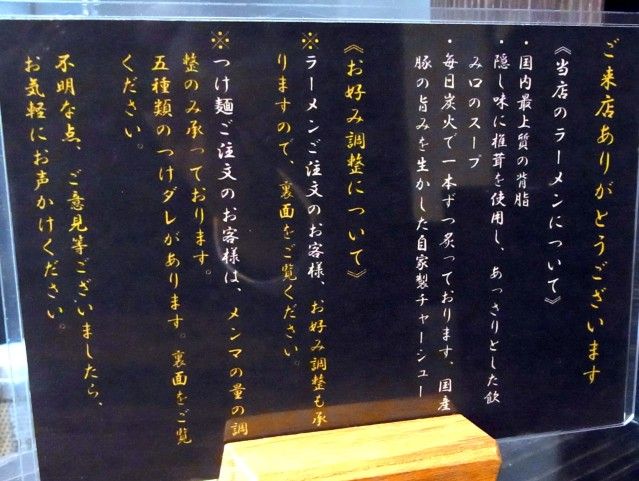 ご来店ありがとうございます
《当店のラーメンについて》
・国内最上質の背脂
・隠し味に椎茸を使用し、あっさりとした飲
み口のスープ
・毎日炭火で一本ずつ炙っております、国産
豚の旨みを生かした自家製チャーシュー
《お好み調整について》
※ラーメンご注文のお客様、お好み調整も承
りますので、裏面をご覧ください。
※つけ麺ご注文のお客様は、メンマの量の調
整のみ承っております。
五種類のつけダレがあります。裏面をご覧
ください。
不明な点、ご意見等ございましたら、
お気軽にお声かけください。